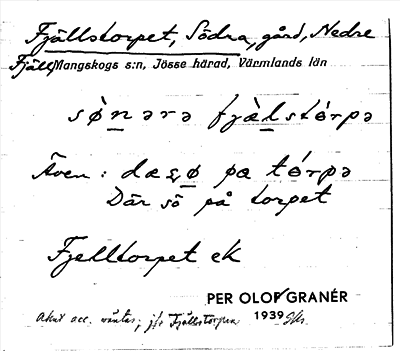 Fjällstorpet, Södra, gård, Nedre
Fjäll, Mangskogs s:n, Jösse härad, Värmlands län
sø̀nərə fjæ̀lstórpə
Även: dæ sø pə tórpə
Där sö på torpet
Fjelltorpet ek
PER OLOF GRANÉR
1939
Akut acc. väntas; jfr Fjällstorpen